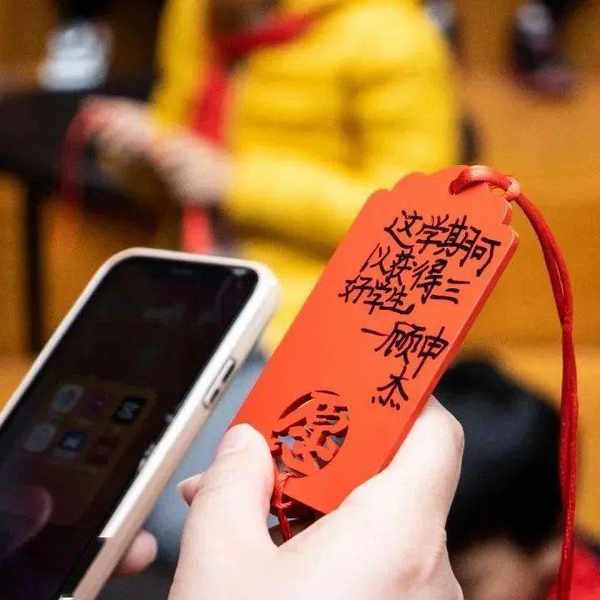 这学期可
以获得三
好学生
—顾申
杰